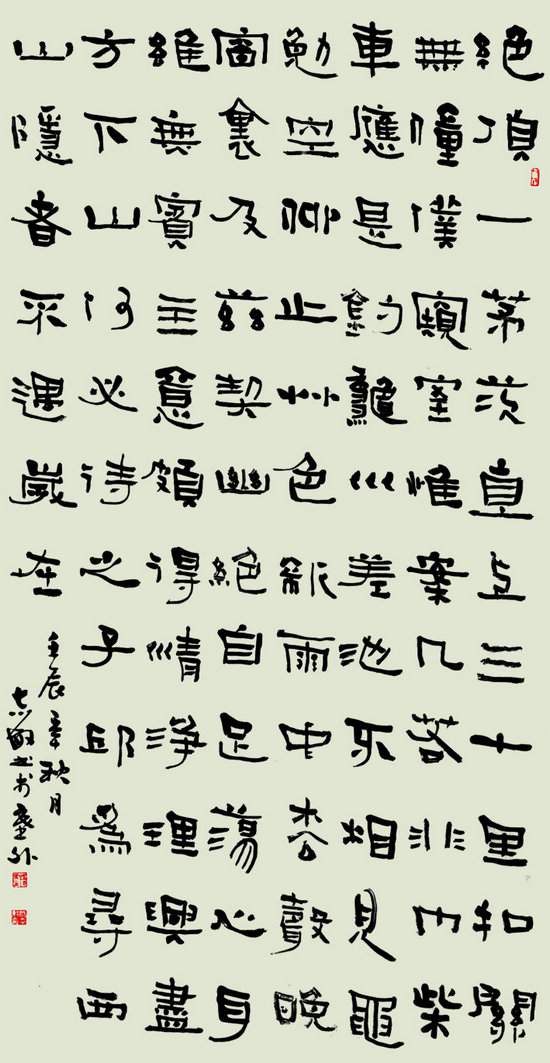 絕頂一茅茨直上三十里扣關
無僮僕窺室惟案几若非巾柴
車應是釣龝水差池不相見黽
勉空仰止艸色新雨中松聲晚
窗裏及茲契幽絕自足蕩心耳
雖無賓主意頗得清淨理興盡
方下山何必待之子邱為尋西
山隱者不遇歲在
壬辰年秋月
志敏书於塵外